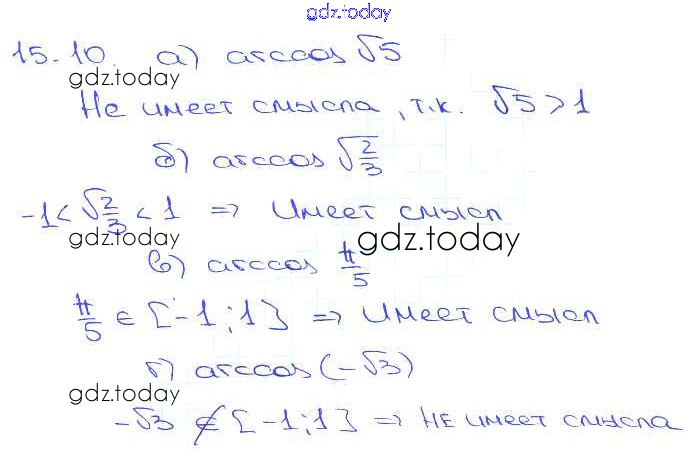 gdz.today
15.10. а) arccos √5
gdz.today
Не имеет смысла, т.к. √5 > 1
б) arccos √2/3
-1 < √2/3 < 1 => Имеет смысл
gdz.today
gdz.today
в) arccos π/5
π/5 ∈ [-1;1] => Имеет смысл
г) arccos(-√3)
gdz.today
-√3 ∉ [-1;1] => Не имеет смысла